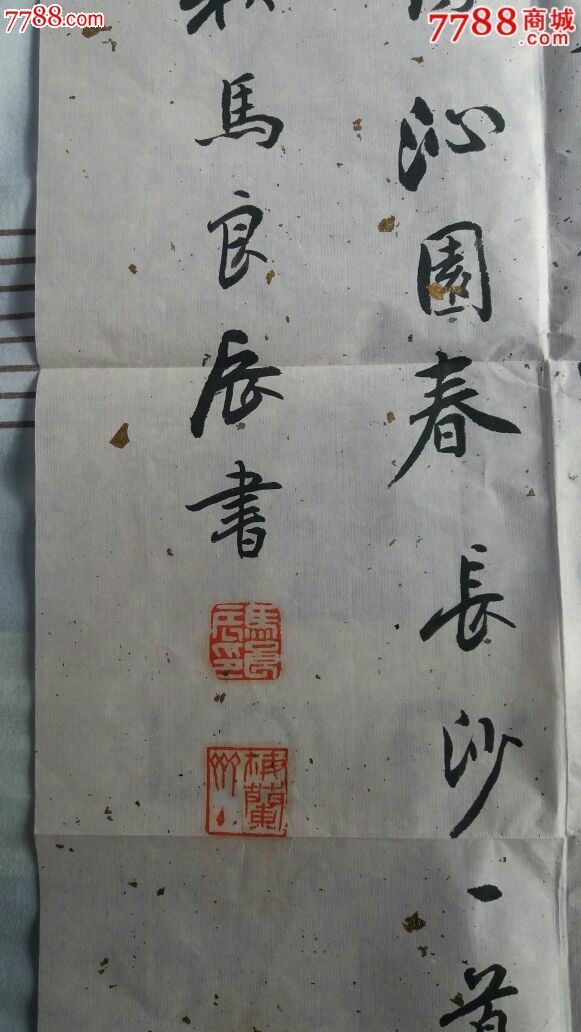 7788.com
7788商城
com
沁園春長沙一首
馬良辰書
馬良
辰印